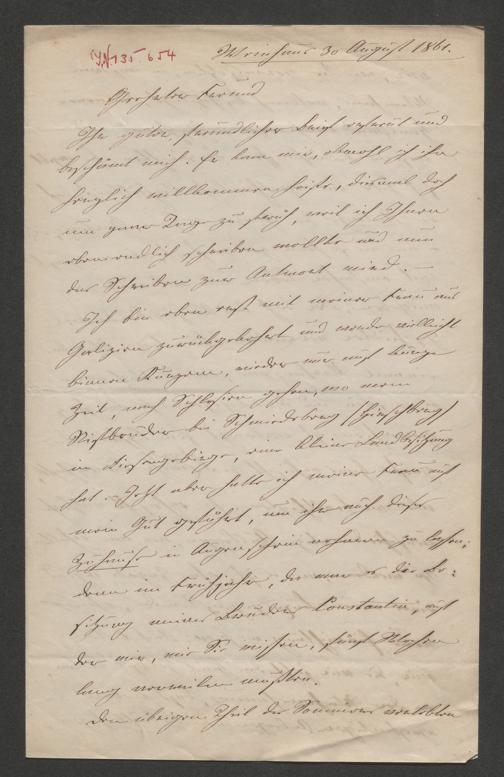 JN 135.654
Weinhaus 30 August 1861.
Verehrter Freund
Ihr guter, freundlicher Brief erfreut und
beschämt mich. Er kam mir, obwohl ich ihn
herzlich willkommen heiße, diesmal doch
um zwei Tage zu früh, weil ich Ihnen
eben endlich schreiben wollte und nun
das Schreiben zur Antwort wird. –
Ich bin eben erst mit meiner Frau aus
Galizien zurückgekehrt und werde vielleicht
binnen Kurzem, wieder nur auf kurze
Zeit, nach Schlesien gehen, wo mein
Stiefbruder bei Schmiedeberg (Hirschberg)
im Riesengebirge, eine kleine Landbesitzung
hat. Jetzt aber hatte ich meine Frau auf
mein Gut geführt, um ihr auch dieses
Zuhause in Augenschein nehmen zu lassen;
denn im Frühjahr, da war es die Be-
sitzung meines Bruders Constantin, auf
der wir, wie Sie wissen, fünf Wochen
lang verweilen mußten.
Den übrigen Theil des Sommers verlebten